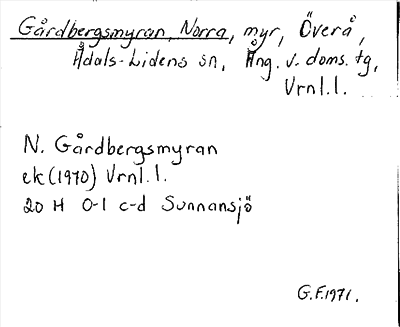 Gårdbergsmyran, Norra, myr, Överå,
Ådals-Lidens sn, Ång. v. doms. tg,
Vrnl.l.
N. Gårdbergsmyran
ek (1970) Vrnl.l.
20 H 0-1 c-d Sunnansjö
G.F. 1971.